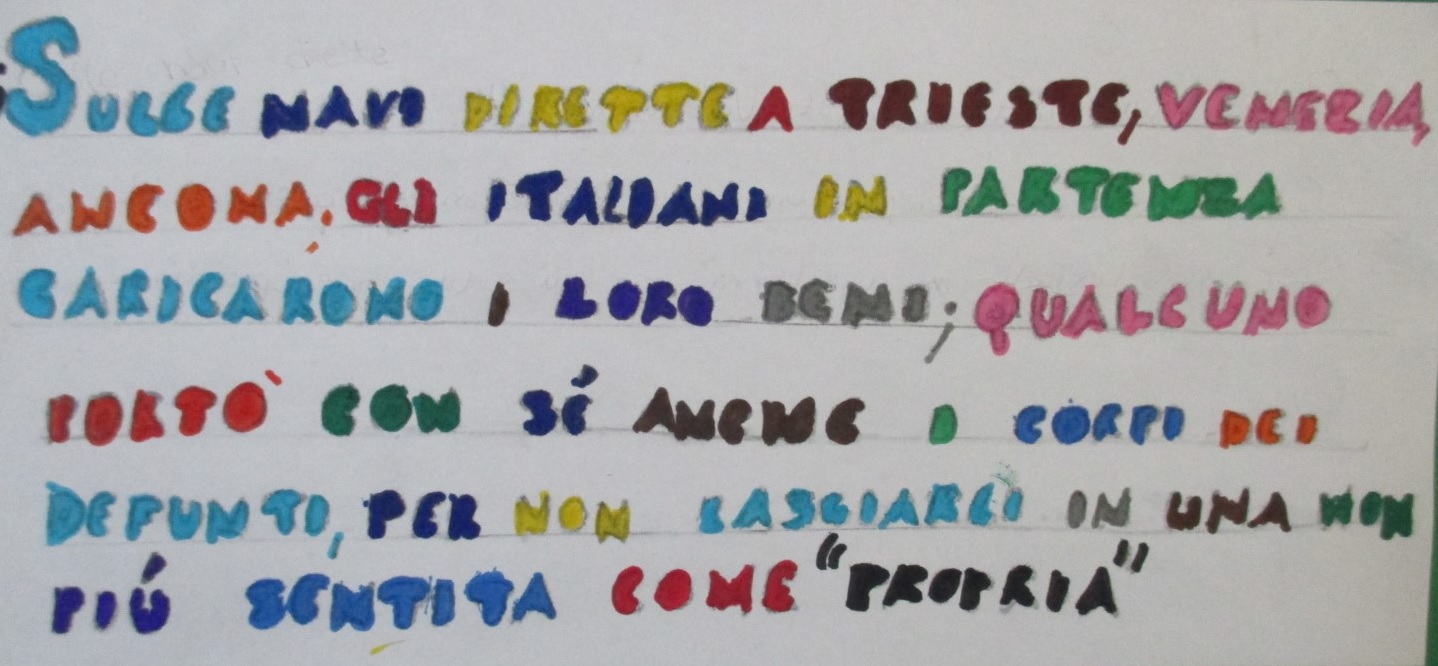 SULLE NAVI DIRETTE A TRIESTE, VENEZIA,
ANCONA, GLI ITALIANI IN PARTENZA
CARICARONO I LORO BENI; QUALCUNO
PORTÒ CON SÉ ANCHE I CORPI DEI
DEFUNTI, PER NON LASCIARLI IN UNA NON
PIÚ SENTITA COME "PROPRIA"